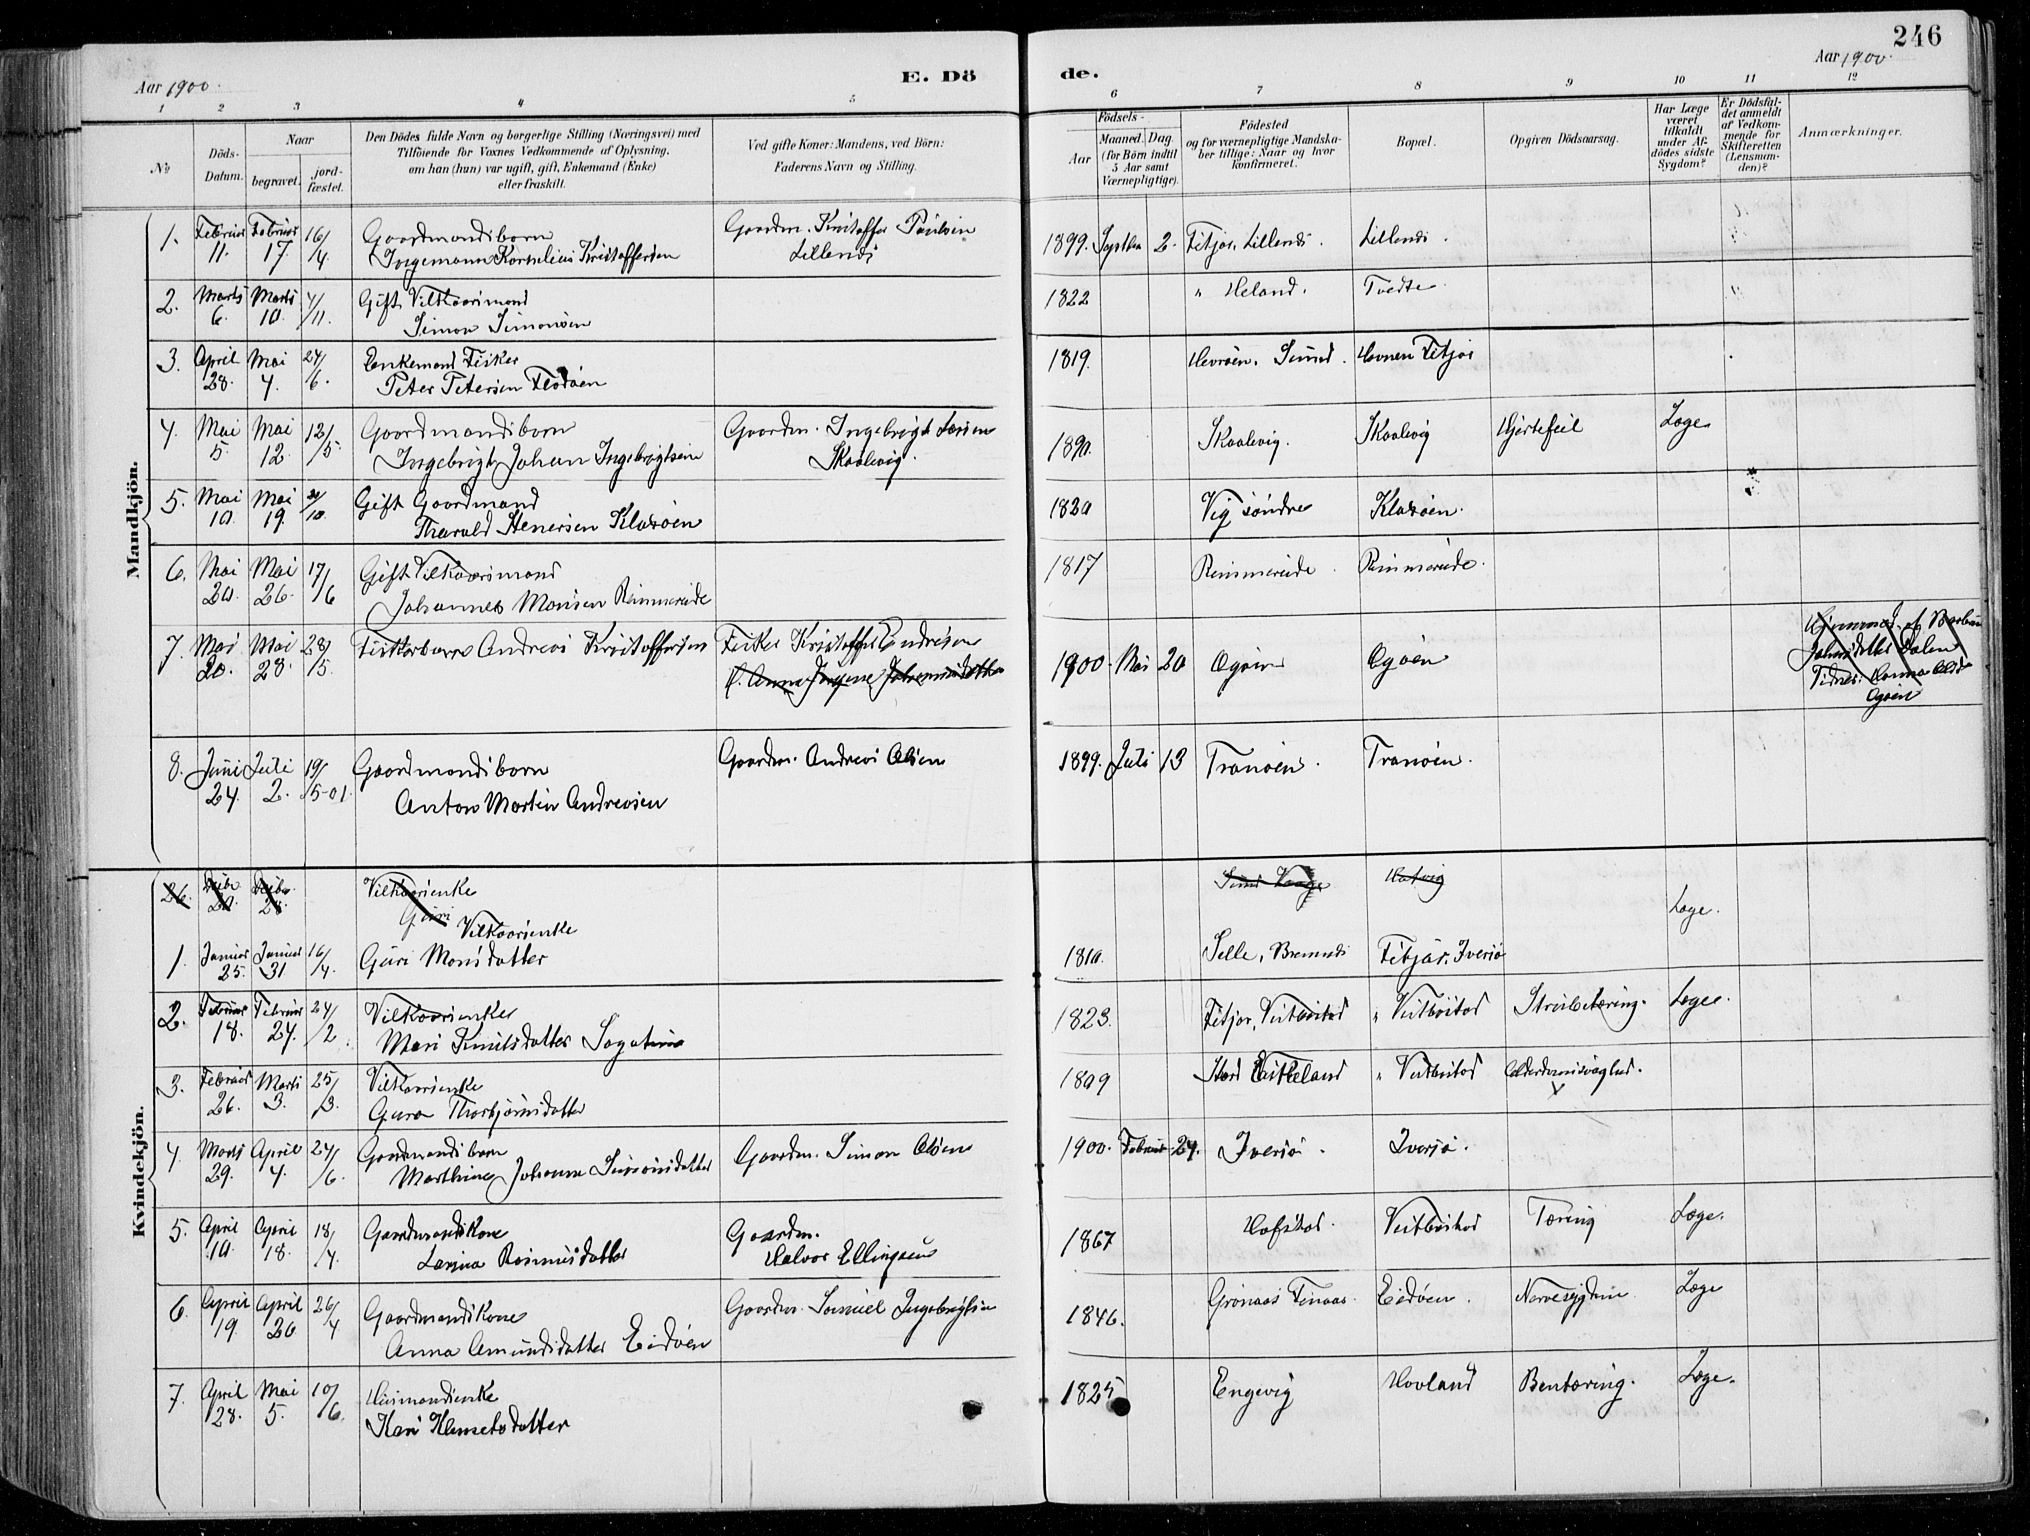 246
Aar 1900.
E. Dö
de.
Aar 1900.
1 2 3 4 5 6 7 8 9 10 11 12
No
Döds-
Datum.
Naar
begravet.
jord-
fæstet.
Den Dödes fulde Navn og borgerlige Stilling (Næringsvei) med
Tilföiende for Voxnes Vedkommende af Oplysning,
om han (hun) var ugift, gift, Enkemand (Enke)
eller fraskilt.
Ved gifte Koner: Mandens, ved Börn:
Faderens Navn og Stilling.
Födsels-
Aar
Maaned. Dag.
(for Börn indtil
5 Aar samt
Værnepligtige).
Födested
og for værnepligtige Mandska-
ber tillige: Naar og hvor
konfirmeret.
Bopæl.
Opgiven Dödsaarsag.
Har Læge
været
tilkaldt
under Af-
dödes sidste
Sygdom?
Er Dödsfal-
det anmeldt
af Vedkom-
mende for
Skifteretten
(Lensman-
den)?
Anmærkninger.
Mandkjön.
1. Februar 11. Februar 17. 16/4 Gaardmandsbarn
Ingemann Kornelius Kristoffersen
Gaardm. Kristoffer Paulsen
Lillends
1899. Septbr 2. Fitjar, Lillends. Lillends.
2. Marts 6. Marts 10. 4/11. Gift Vilkaarsmand
Simon Simonsen
1822 " Heland. Tvedte
3. April 28. Mai 4. 24/6. Enkemand Fisker
Peter Petersen Flodøen
1819. Hevrøen. Sund. Hovnen Fitjar
4. Mai 5. Mai 12. 12/5. Gaardmandsbarn
Ingebrigt Johan Ingebrigtsen
Gaardm. Ingebrigt Larsen
Skaalevig.
1890. Skaalevig. Skaalevig Hjertefeil Læge
5. Mai 10. Mai 19. /10. Gift Gaardmand
Tharald Henersen Klasøen
1820 Vig søndre Klasøen.
6. Mai 20. Mai 26. 17/6 Gift Vilkaarsmand
Johannes Monsen Rimmereide
1817 Rimmereide. Rimmereide.
7. Mai 20. Mai 28. 28/5. Fiskerbarn Andreas Kristoffersen
Fisker Kristoffer Andreasen
1900. Mai 20 Agøen Agøen
Dalen
Agøen
8. Juni 24. Juli 2. 19/5-01. Gaardmandsbarn
Anton Martin Andreasen
Gaardm. Andreas Olsen
1899. Juli 13 Tranøen. Tranøen.
Kvindekjön.
26. Decbr. 20. Decbr. 28. Vilkaarsenke
Guri
Læge.
1. Januar 25. Januar 31 16/4. Vilkaarsenke
Guri Monsdatter
1810. Selle, Bremnes Fitjar, Iversø
2. Februar 18. Februar 24. 24/2. Vilkaarsenke
Mari Knutsdatter
1823. Fitjar, Vestbøstad " Vestbøstad Læge.
3. Februar 26. Marts 3. 25/3. Vilkaarsenke
Guro Thorbjørnsdatter
1809 Stord " Vestbøstad Alderdomssvaghed.
4. Marts 29. April 4. 24/6. Gaardmandsbarn
Marthine Johanne Simonsdatter
Gaardm. Simon Olsen
1900. Februar 24. Iversø. Iversø.
5. April 10. April 18. 18/4. Gaardmandskone
Larina Rasmusdatter
Gaardm.
Halvor Ellingsen
1867 Hafstad. Vestbøstad Tæring Læge.
6. April 19. April 26 26/4. Gaardmandskone
Anna Amundsdatter Eidøen
Gaardm. Samuel Ingebrigtsen
1846. Grønaas Finaas. Eidøen. Nervesygdom Læge
7. April 28. Mai 5. 10/6. Husmandsenke
Kari Klemetsdatter
1825 Engevig Hovland Bentæring. Læge.